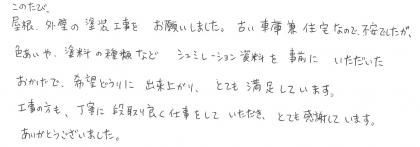 このたび、
屋根、外壁の塗装工事を お願いしました。古い車庫兼住宅なので、不安でしたが、
色あいや、塗料の種類など シュミレーション資料を 事前に いただいた
おかげで、希望どうりに 出来上がり、とても 満足しています。
工事の方も、丁寧に 段取り良く仕事をして いただき、とても感謝しています。
ありがとうございました。